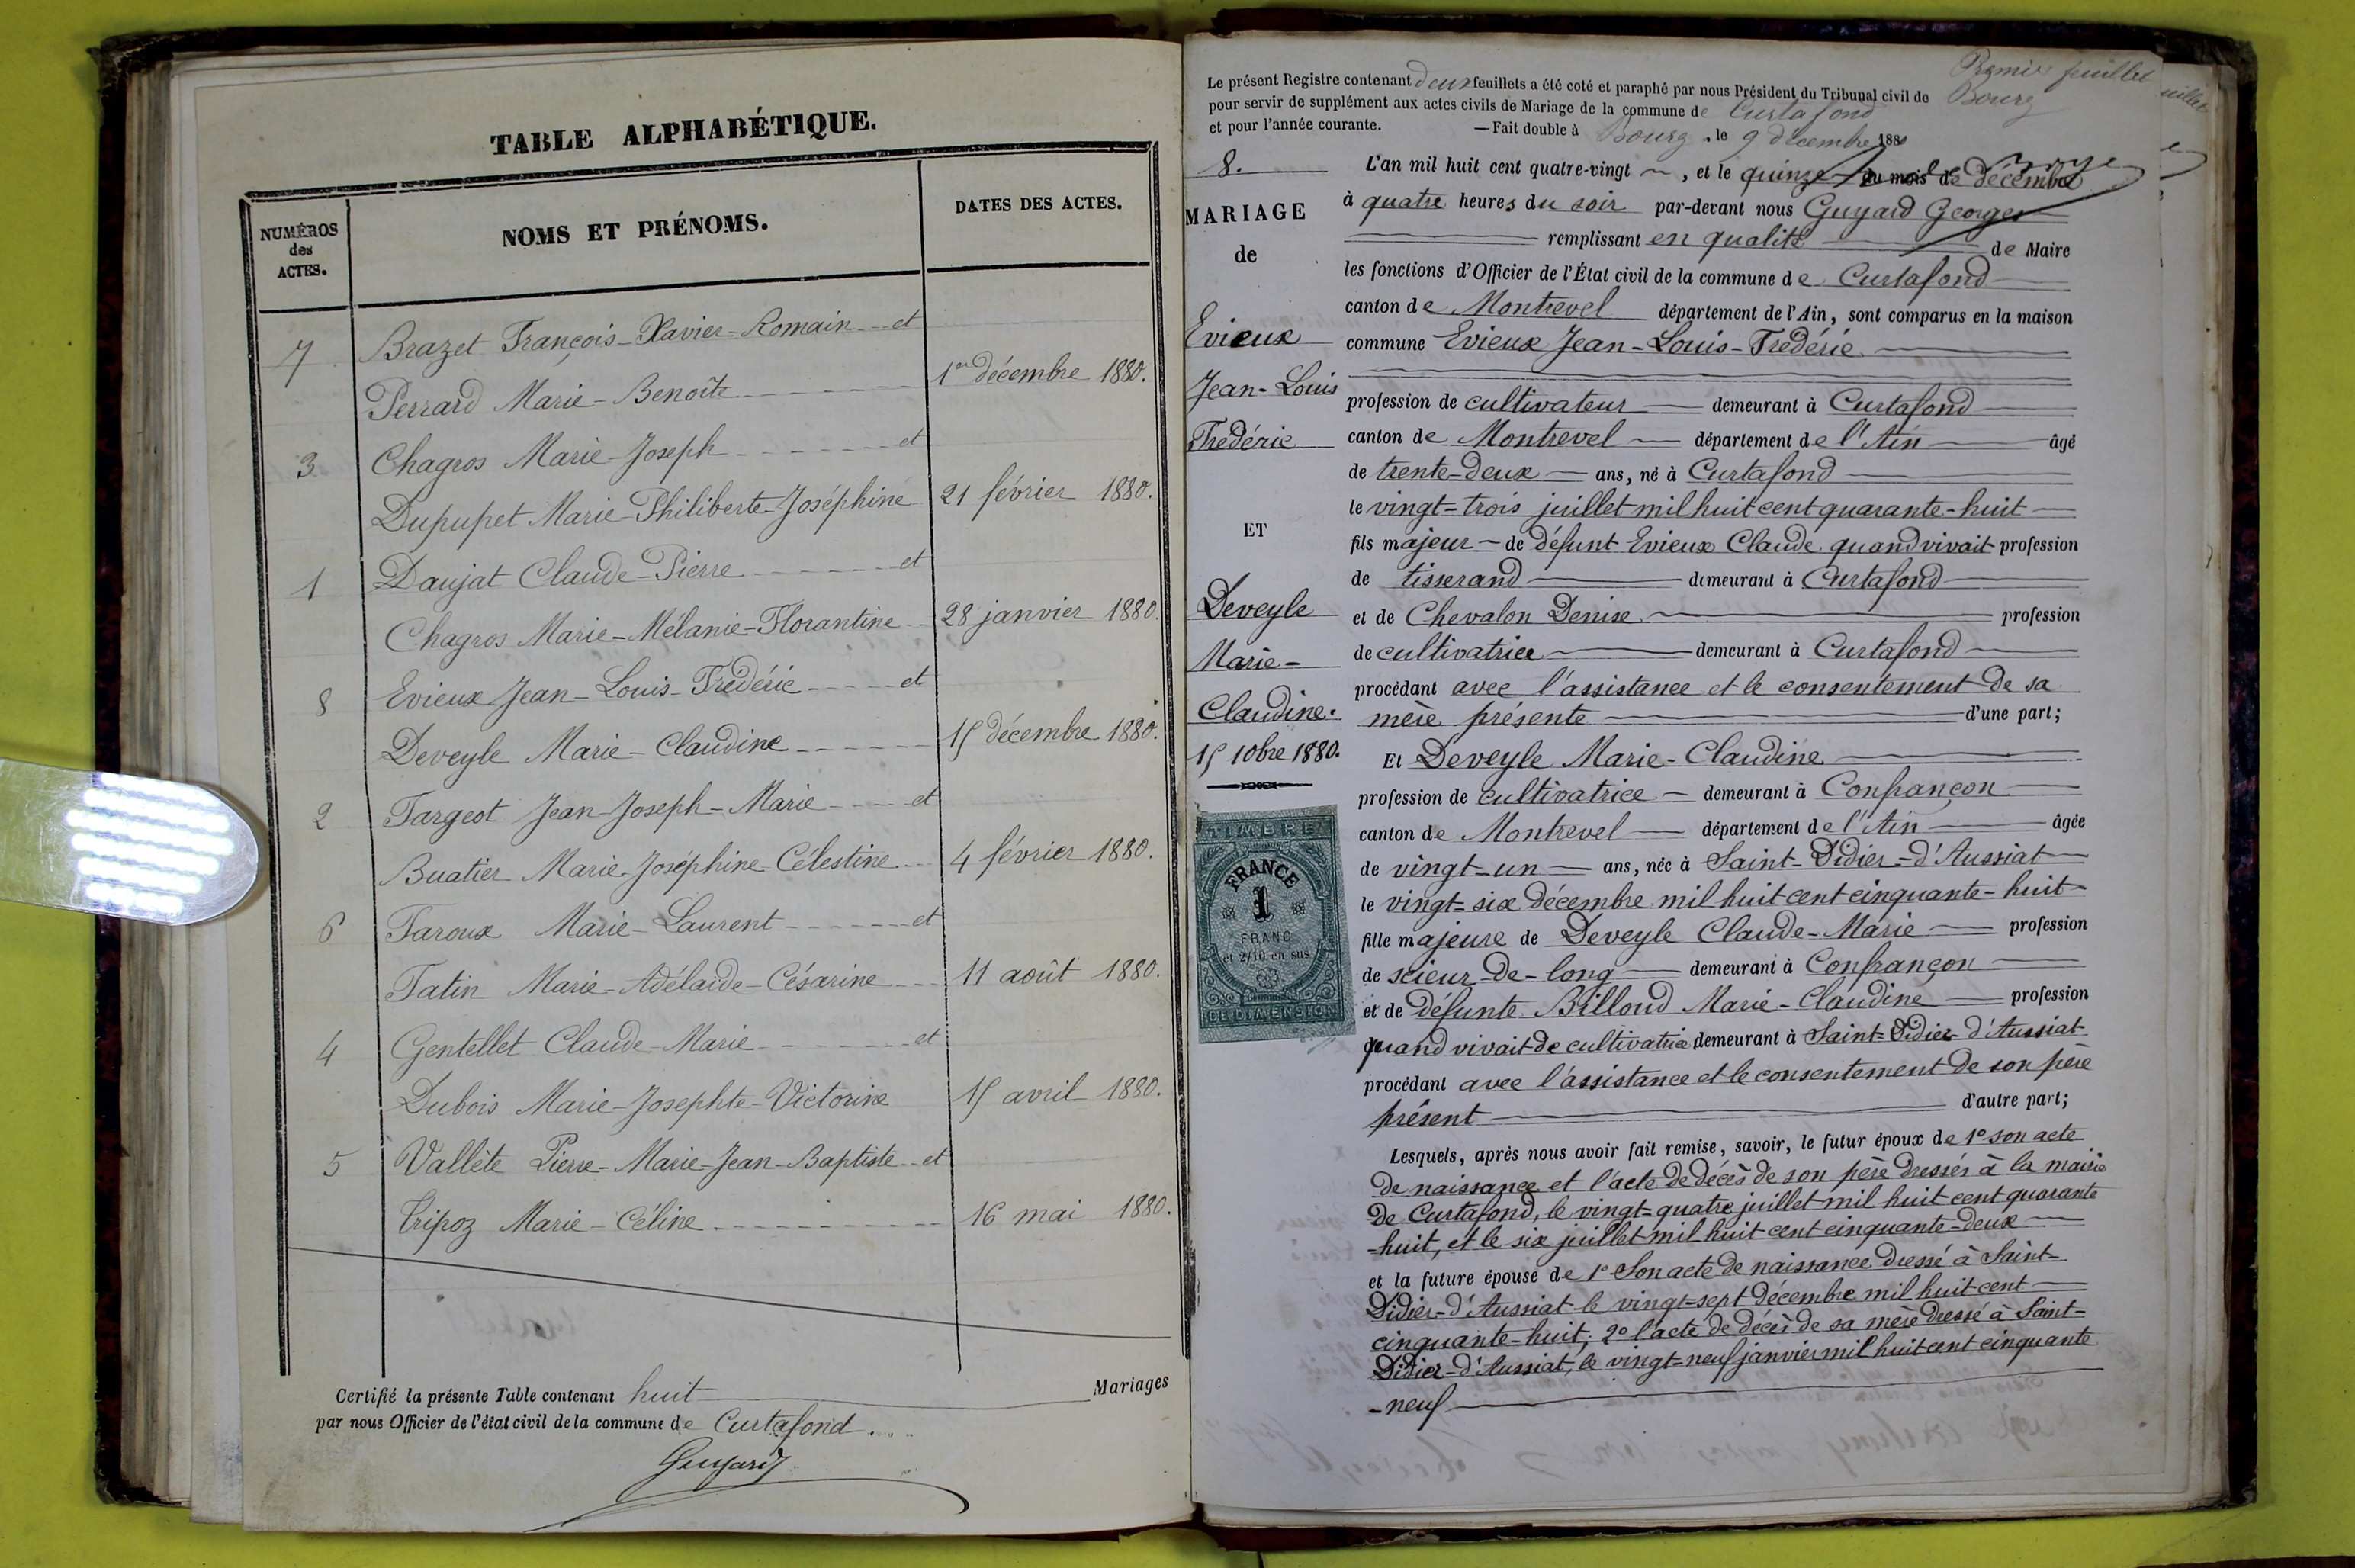 TABLE ALPHABÉTIQUE.
NUMÉROS
des
ACTES.
NOMS ET PRÉNOMS.
DATES DES ACTES.
7 Brazet François-Xavier-Romain et
Perrard Marie-Benoîte 1er décembre 1880.
3 Chagros Marie-Joseph et
Dupupet Marie-Philiberte-Joséphine 21 février 1880.
1 Daujat Claude-Pierre et
Chagros Marie-Mélanie-Florantine 28 janvier 1880.
8 Evieux Jean-Louis-Frédéric et
Deveyle Marie-Claudine 15 décembre 1880.
2 Fargeot Jean-Joseph-Marie et
Buatier Marie-Joséphine-Célestine 4 février 1880.
6 Faroux Marie-Laurent et
Tatin Marie-Adélaïde-Césarine 11 août 1880.
4 Gentellet Claude-Marie et
Dubois Marie-Josephte-Victorine 15 avril 1880.
5 Vallête Pierre-Marie-Jean-Baptiste et
Tripoz Marie-Céline 16 mai 1880.
Certifié la présente Table contenant huit Mariages
par nous Officier de l'état civil de la commune de Curtafond
Guyard
Premier feuillet
Le présent Registre contenant deux feuillets a été coté et paraphé par nous Président du Tribunal civil de Bourg
pour servir de supplément aux actes civils de Mariage de la commune de Curtafond
et pour l'année courante. — Fait double à Bourg, le 9 décembre 1880
8.
MARIAGE
de
Evieux
Jean-Louis
Frédéric
ET
Deveyle
Marie-
Claudine.
15 10bre 1880.
TIMBRE
FRANCE
1
FRANC
et 2/10 en sus
DE DIMENSION
L'an mil huit cent quatre-vingt, et le quinze du mois de décembre
à quatre heures du soir par-devant nous Guyard Georges
remplissant en qualité de Maire
les fonctions d'Officier de l'État civil de la commune de Curtafond
canton de Montrevel département de l'Ain, sont comparus en la maison
commune Evieux Jean-Louis-Frédéric
profession de cultivateur demeurant à Curtafond
canton de Montrevel département de l'Ain âgé
de trente-deux ans, né à Curtafond
le vingt-trois juillet mil huit cent quarante-huit
fils majeur de défunt Evieux Claude quand vivait profession
de tisserand demeurant à Curtafond
et de Chevalon Denise profession
de cultivatrice demeurant à Curtafond
procédant avec l'assistance et le consentement de sa
mère présente d'une part;
Et Deveyle Marie-Claudine
profession de cultivatrice demeurant à Confrançon
canton de Montrevel département de l'Ain âgée
de vingt-un ans, née à Saint-Didier-d'Aussiat
le vingt-six décembre mil huit cent cinquante-huit
fille majeure de Deveyle Claude-Marie profession
de scieur-de-long demeurant à Confrançon
et de défunte Billoud Marie-Claudine profession
quand vivait de cultivatrice demeurant à Saint-Didier-d'Aussiat
procédant avec l'assistance et le consentement de son père
présent d'autre part;
Lesquels, après nous avoir fait remise, savoir, le futur époux de 1° son acte
de naissance et l'acte de décès de son père dressés à la mairie
de Curtafond, le vingt-quatre juillet mil huit cent quarante
-huit, et le six juillet mil huit cent cinquante-deux
et la future épouse de 1° Son acte de naissance dressé à Saint-
Didier-d'Aussiat le vingt-sept décembre mil huit cent
cinquante-huit; 2° l'acte de décès de sa mère dressé à Saint-
Didier-d'Aussiat, le vingt-neuf janvier mil huit cent cinquante
-neuf